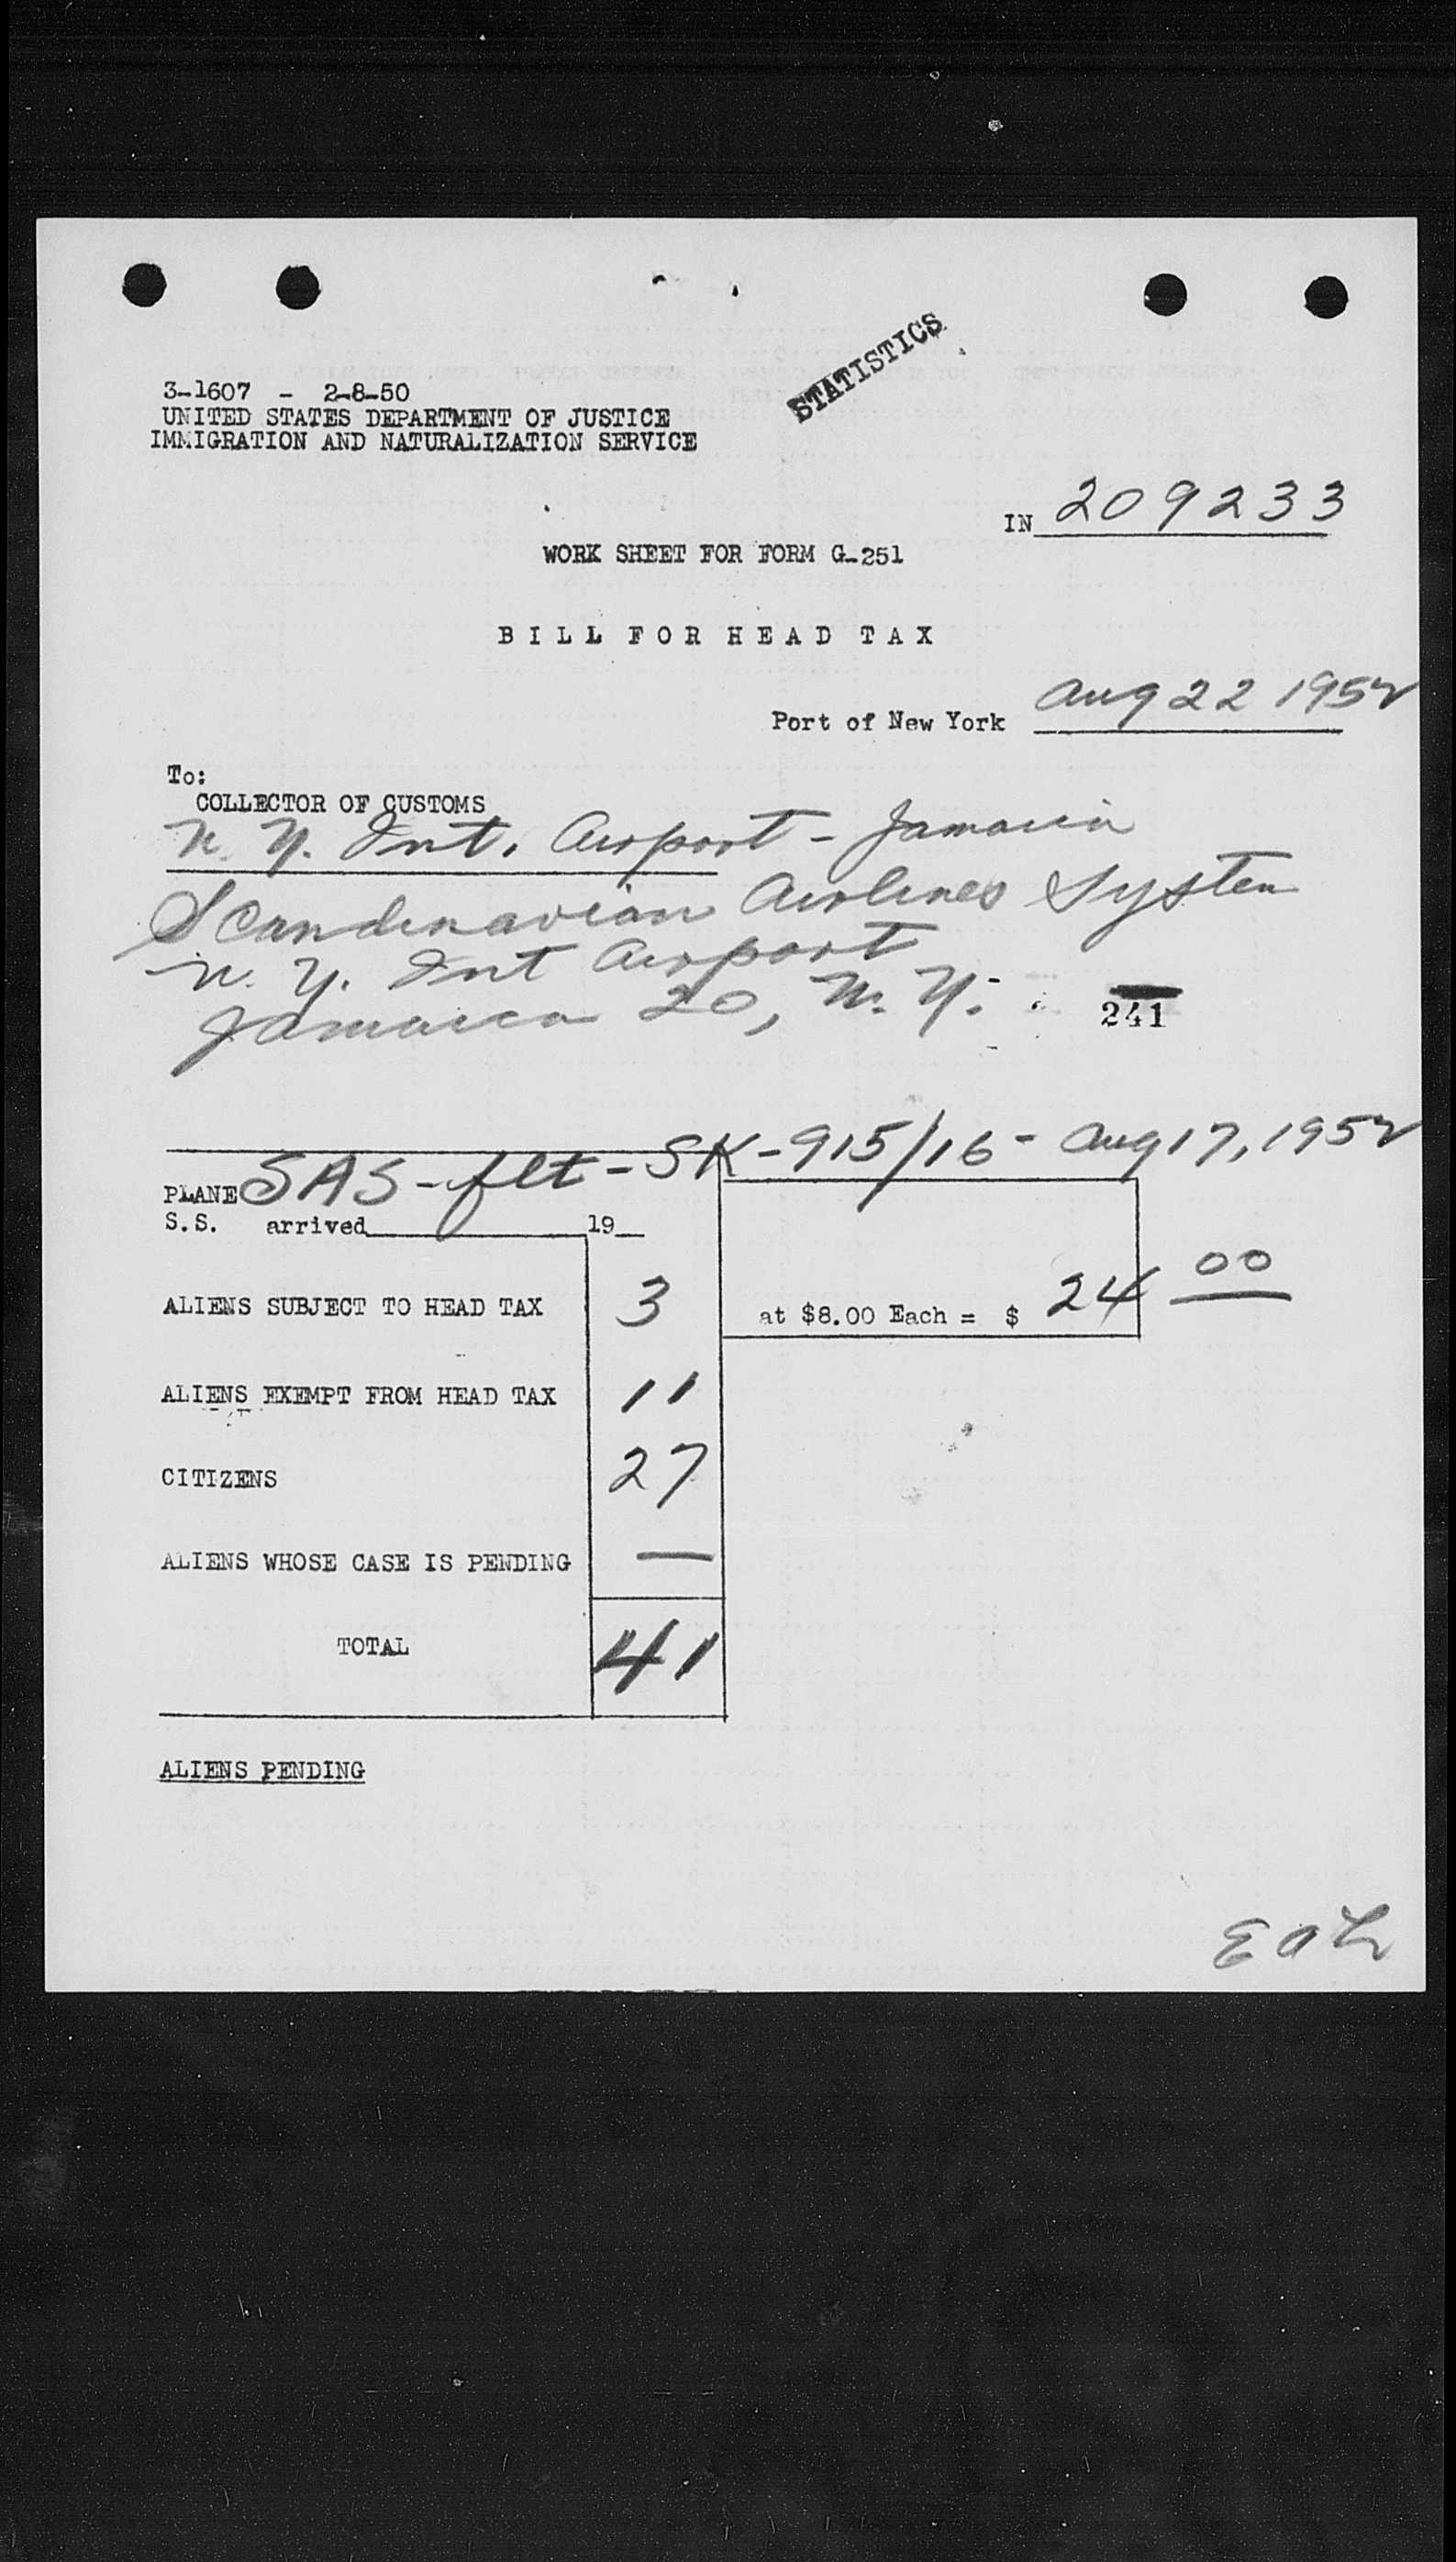 STATISTICS
3-1607 - 2-8-50
UNITED STATES DEPARTMENT OF JUSTICE
IMMIGRATION AND NATURALIZATION SERVICE
IN 209233
WORK SHEET FOR FORM G-251
BILL FOR HEAD TAX
Port of New York Aug 22 1952
To:
COLLECTOR OF CUSTOMS
N. Y. Int. Airport - Jamaica
Scandinavian Airlines System
N. Y. Int Airport
Jamaica 20, N. Y.
241
PLANE SAS - flt - SK - 915/16 - Aug 17, 1952
S.S. arrived 19
ALIENS SUBJECT TO HEAD TAX 3 at $8.00 Each = $ 24 00
ALIENS EXEMPT FROM HEAD TAX 11
CITIZENS 27
ALIENS WHOSE CASE IS PENDING —
TOTAL 41
ALIENS PENDING